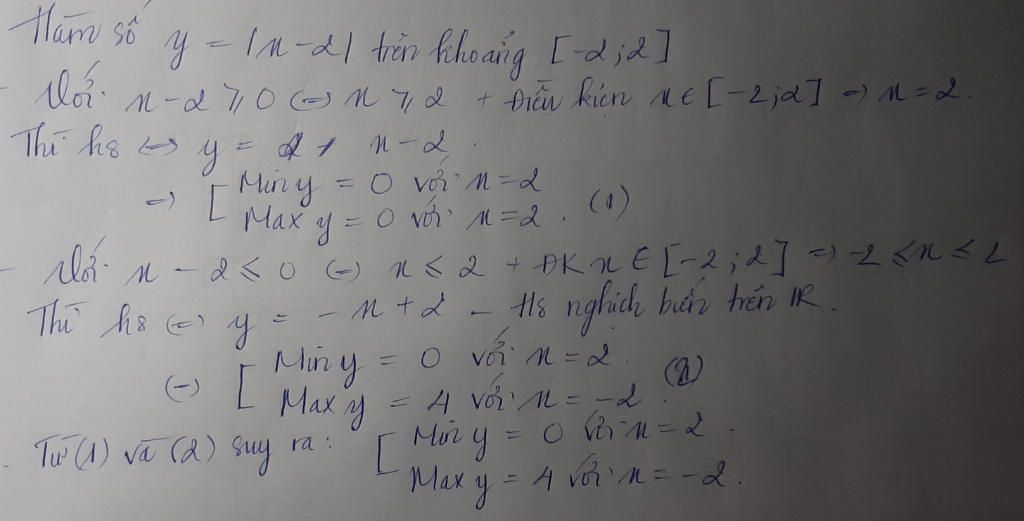 Hàm số y = |x-2| trên khoảng [-2;2]
- Với x-2 ≥ 0 (=) x ≥ 2 + Điều kiện x ∈ [-2;2] => x = 2.
Thì hs <=> y = x-2.
=> [ Min y = 0 với x=2
Max y = 0 với x=2. (1)
- Với x - 2 ≤ 0 (=) x ≤ 2 + ĐK x ∈ [-2;2] => -2 ≤ x ≤ 2
Thì hs (=) y = -x+2 - Hs nghịch biến trên IR.
(=) [ Min y = 0 với x=2. (2)
Max y = 4 với x = -2.
. Từ (1) và (2) suy ra: [ Min y = 0 với x=2.
Max y = 4 với x = -2.